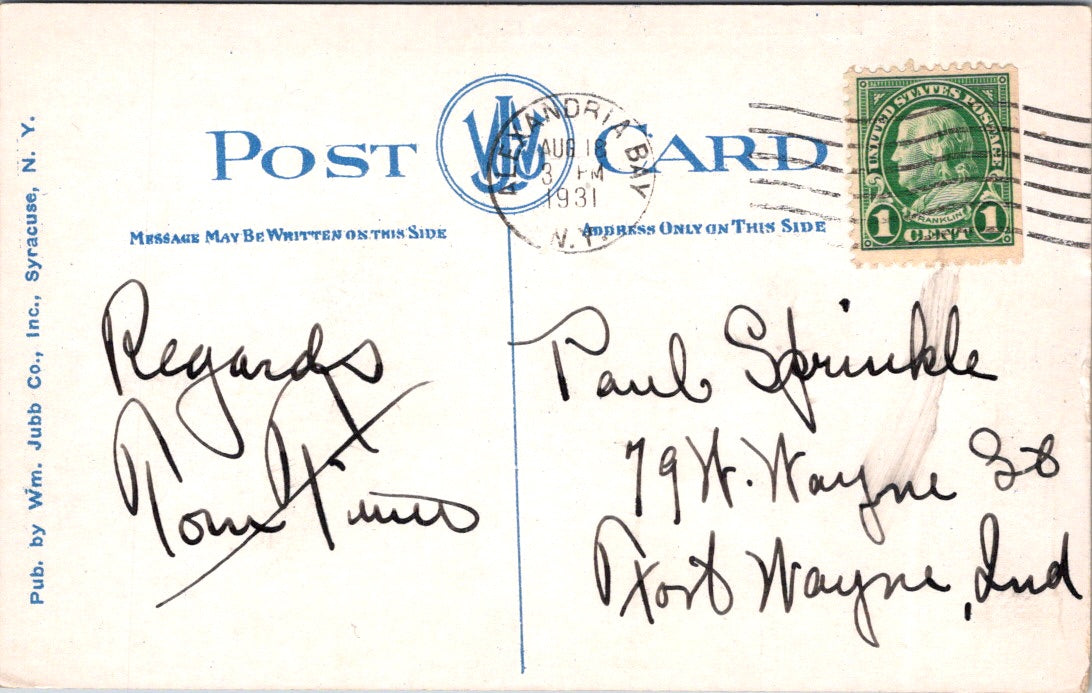 POST CARD
MESSAGE MAY BE WRITTEN ON THIS SIDE
ADDRESS ONLY ON THIS SIDE
ALEXANDRIA BAY
AUG 18
3 PM
1931
N.Y.
UNITED STATES POSTAGE
FRANKLIN
1 CENT 1
Regards
Tom
Paul Sprinkle
79 W. Wayne St
Fort Wayne, Ind
Pub. by Wm. Jubb Co., Inc., Syracuse, N. Y.